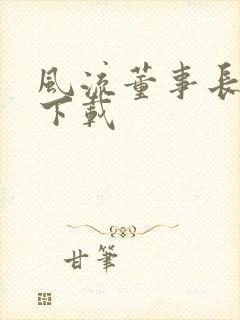 風流董事長
下載
甘筆